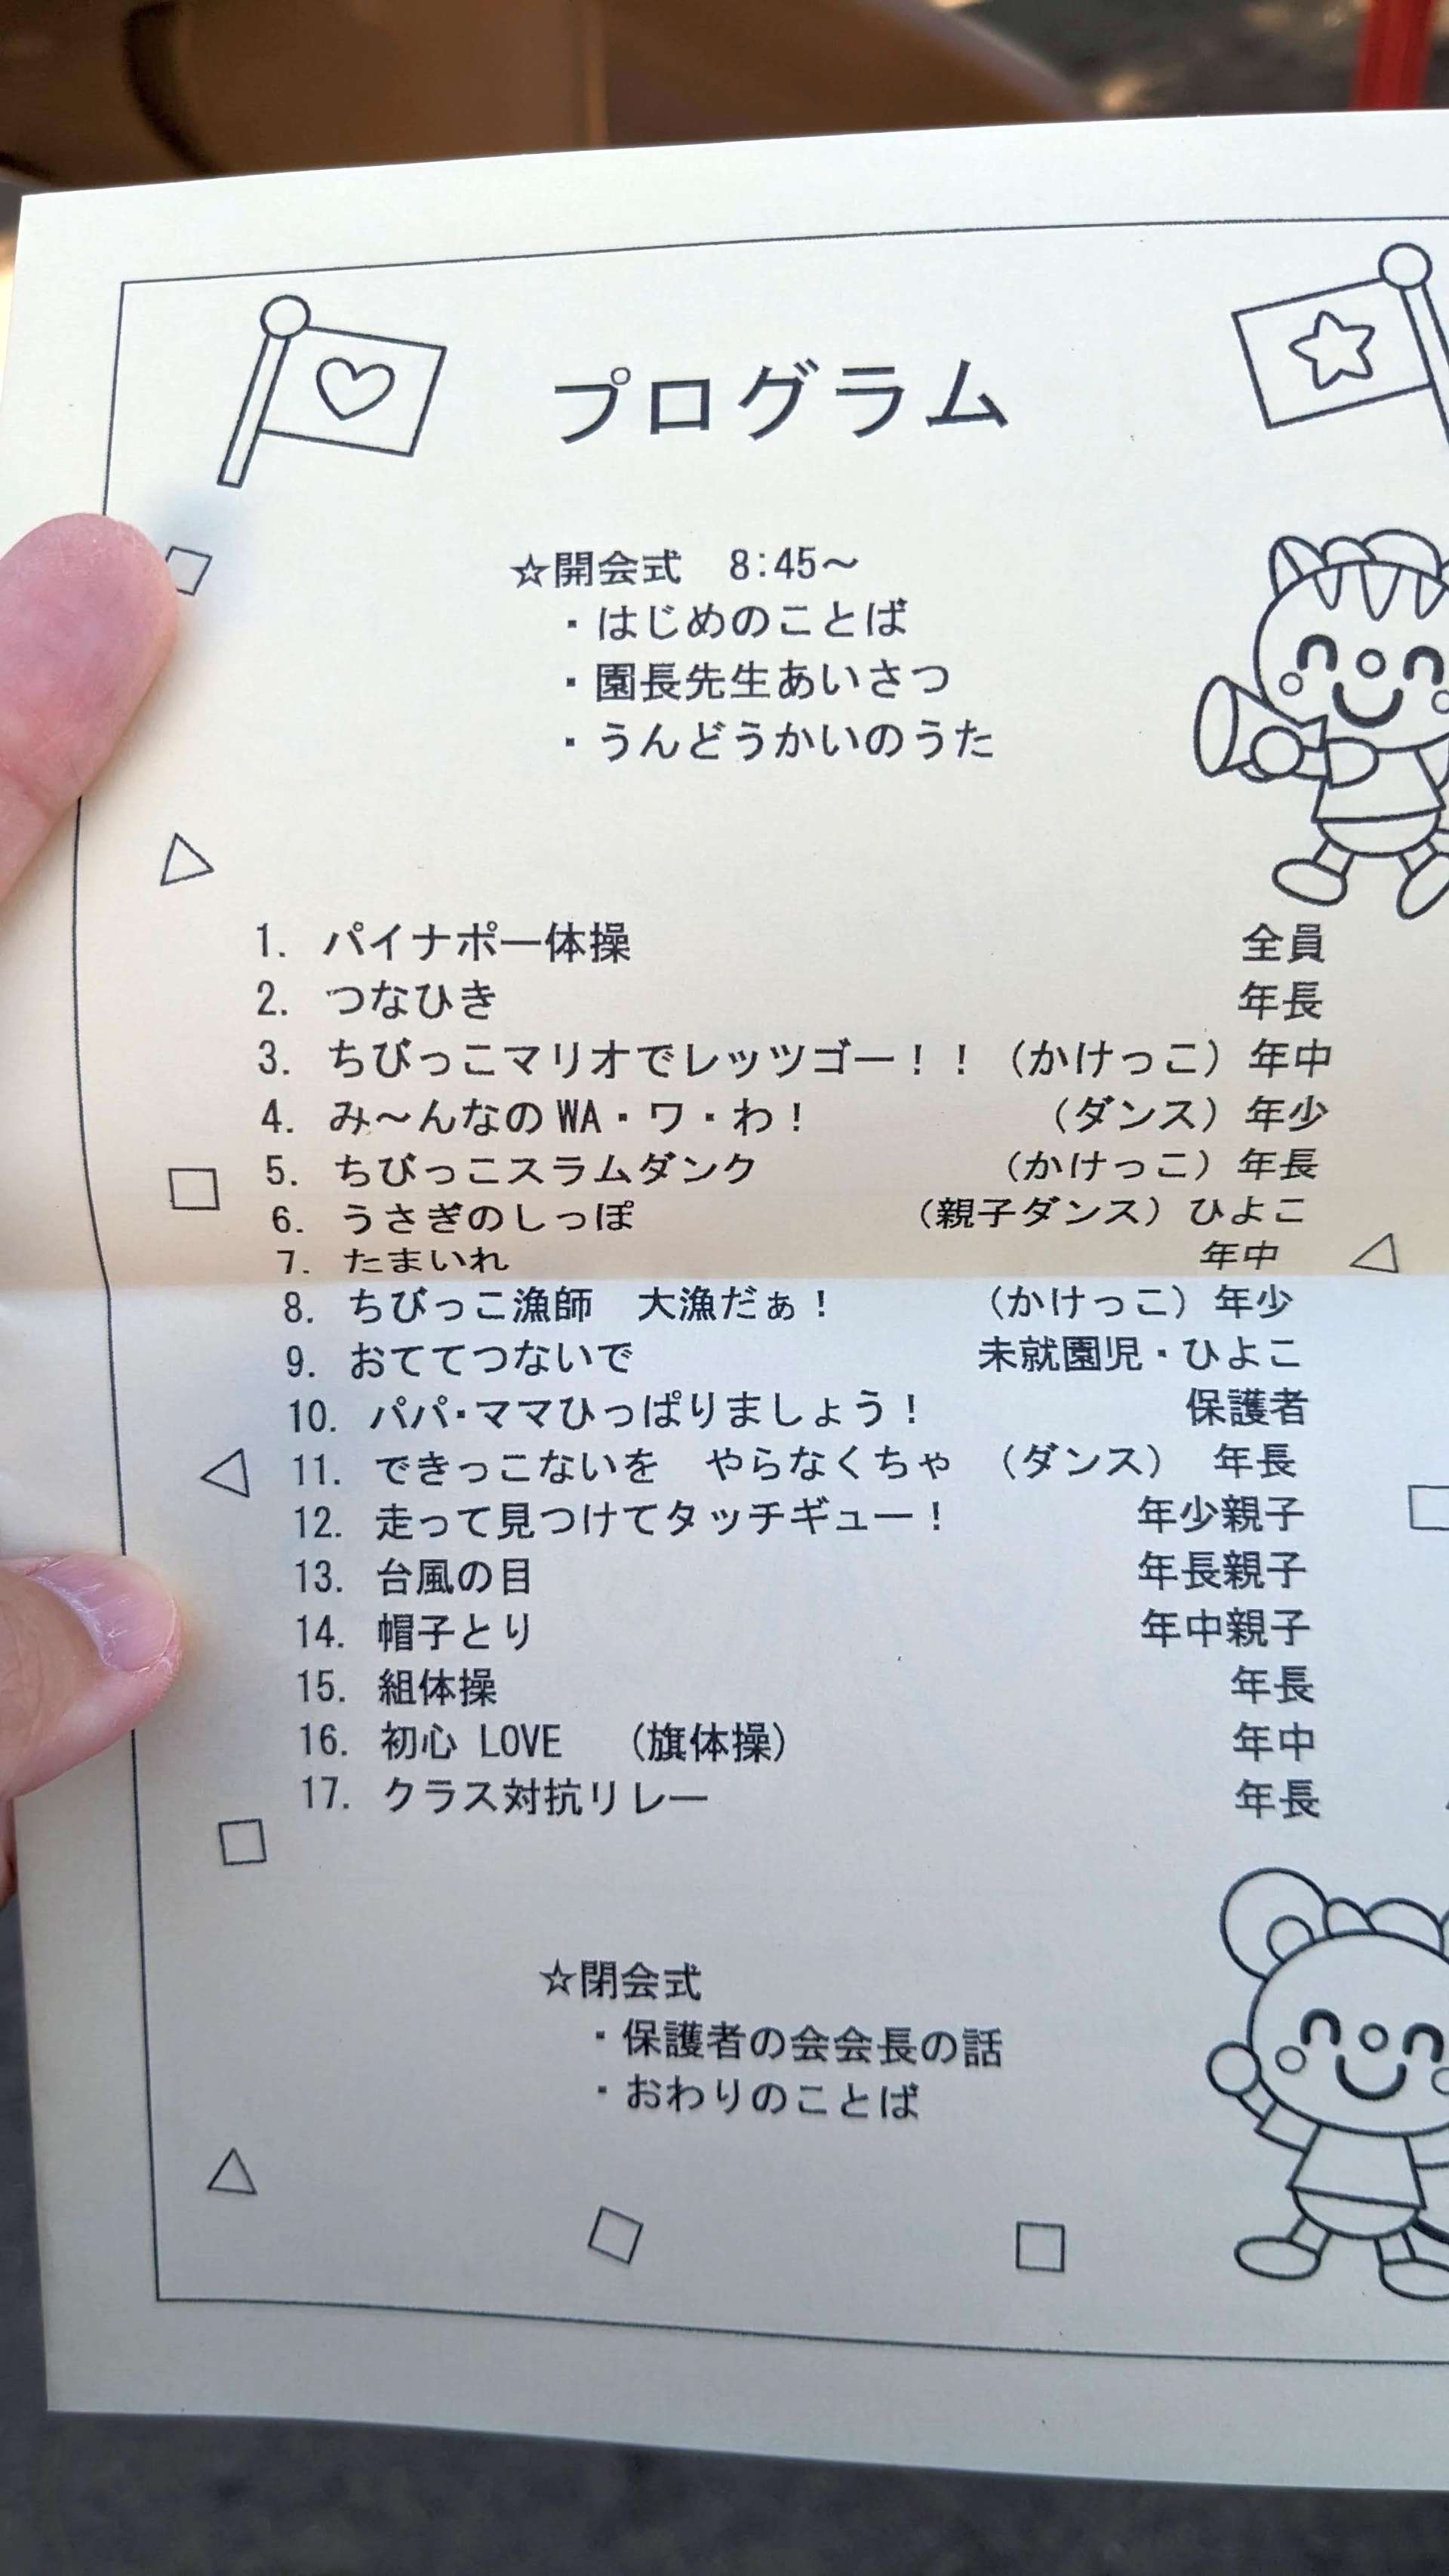 プログラム
☆開会式 8:45～
・はじめのことば
・園長先生あいさつ
・うんどうかいのうた
1. パイナポー体操 全員
2. つなひき 年長
3. ちびっこマリオでレッツゴー！！（かけっこ）年中
4. み～んなのWA・ワ・わ！ （ダンス）年少
5. ちびっこスラムダンク （かけっこ）年長
6. うさぎのしっぽ （親子ダンス）ひよこ
7. たまいれ 年中
8. ちびっこ漁師 大漁だぁ！ （かけっこ）年少
9. おててつないで 未就園児・ひよこ
10. パパ・ママひっぱりましょう！ 保護者
11. できっこないを やらなくちゃ （ダンス） 年長
12. 走って見つけてタッチギュー！ 年少親子
13. 台風の目 年長親子
14. 帽子とり 年中親子
15. 組体操 年長
16. 初心 LOVE （旗体操） 年中
17. クラス対抗リレー 年長
☆閉会式
・保護者の会会長の話
・おわりのことば